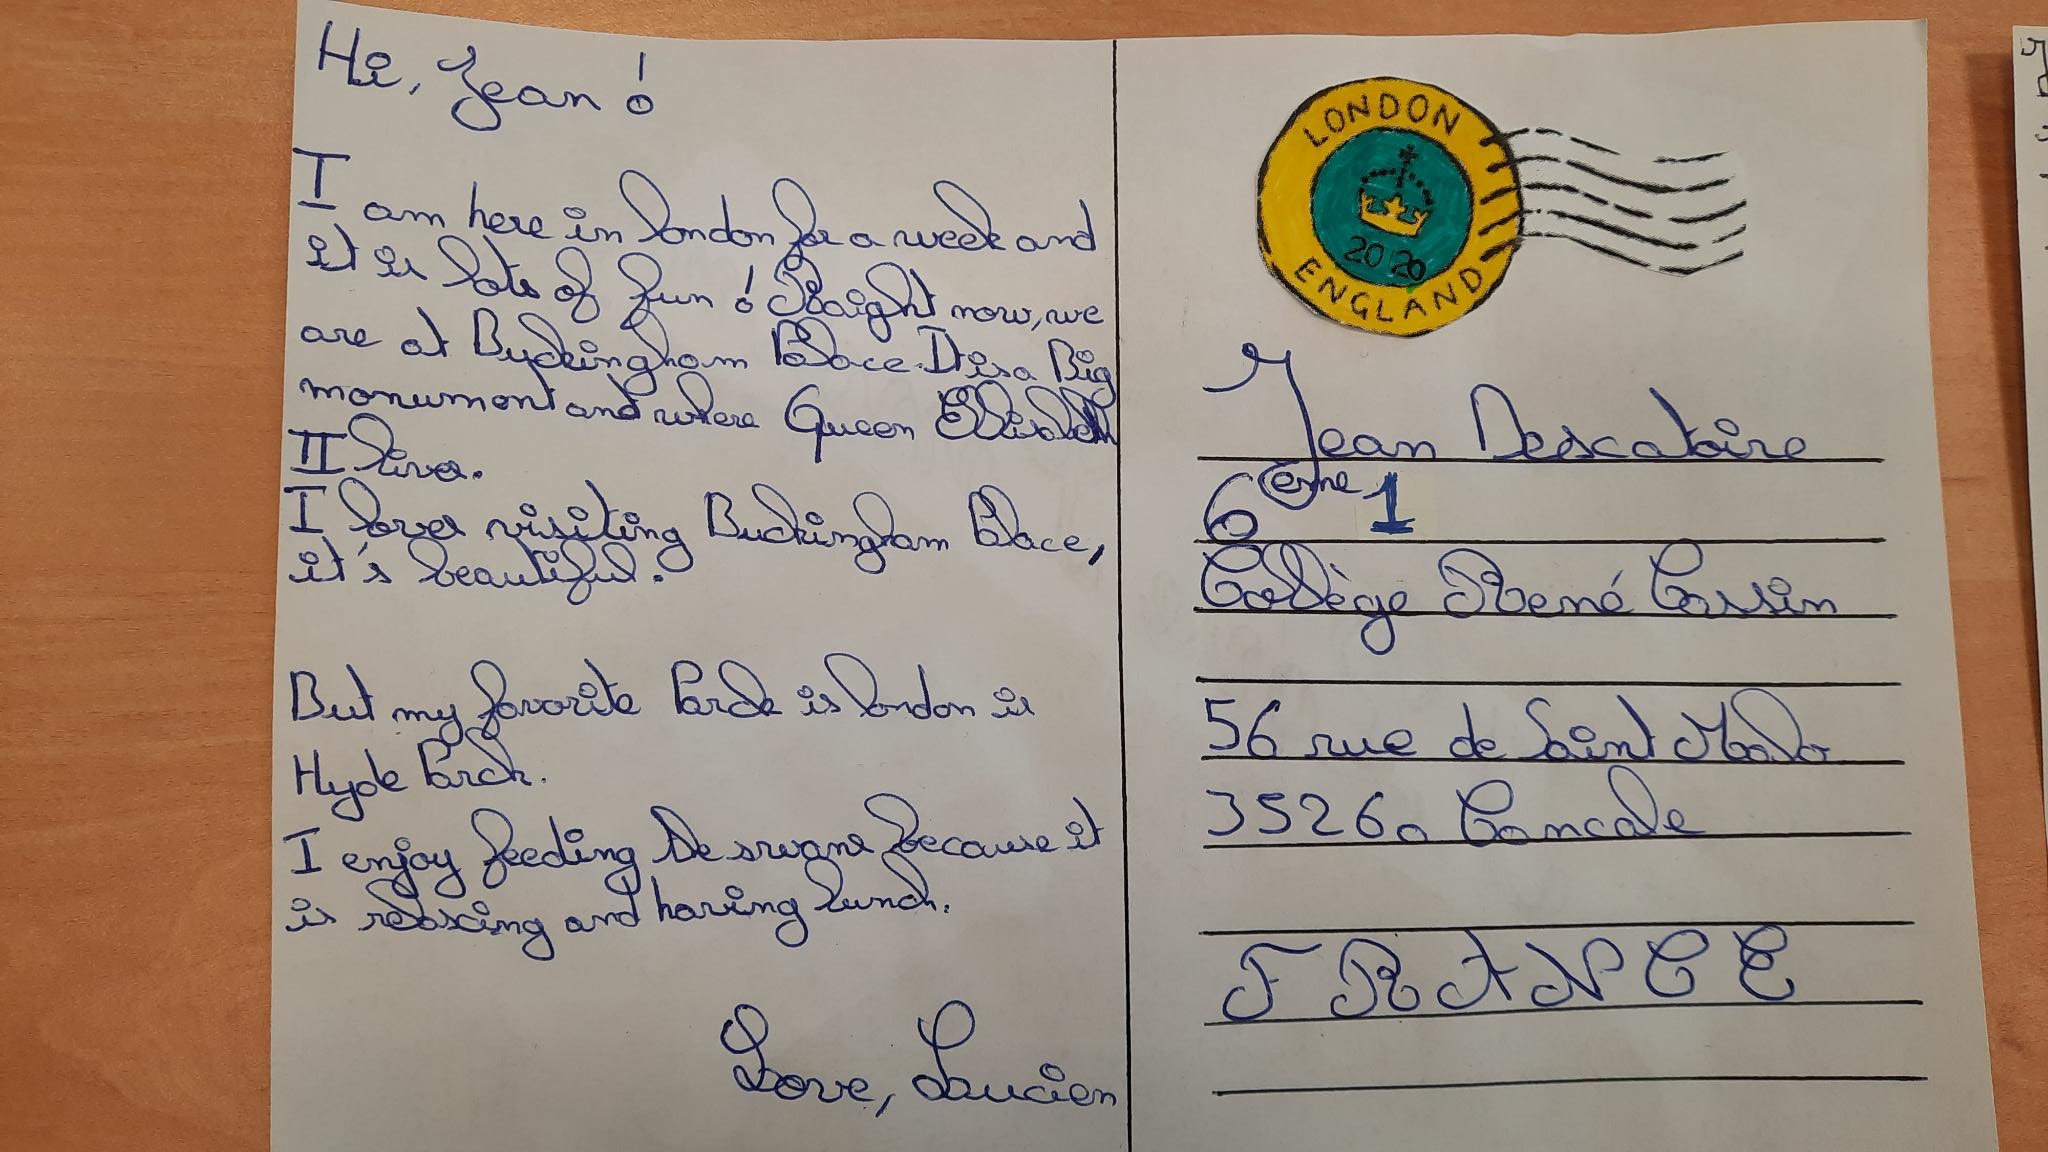 Hi, Jean !
I am here in london for a week and
it is lots of fun ! Raight now, we
are at Buckingham Palace. It is a Big
monument and where Queen Elisabeth
II lives.
I loves visiting Buckingham Palace,
it's beautiful.
But my favorite Parck is london is
Hyde Parck.
I enjoy feeding de swans because it
is relaxing and having lunch.
Love, Lucien
LONDON
2020
ENGLAND
Jean Descatoire
6ème 1
Collège René Cassin
56 rue de Saint Malo
35260 Cancale
FRANCE